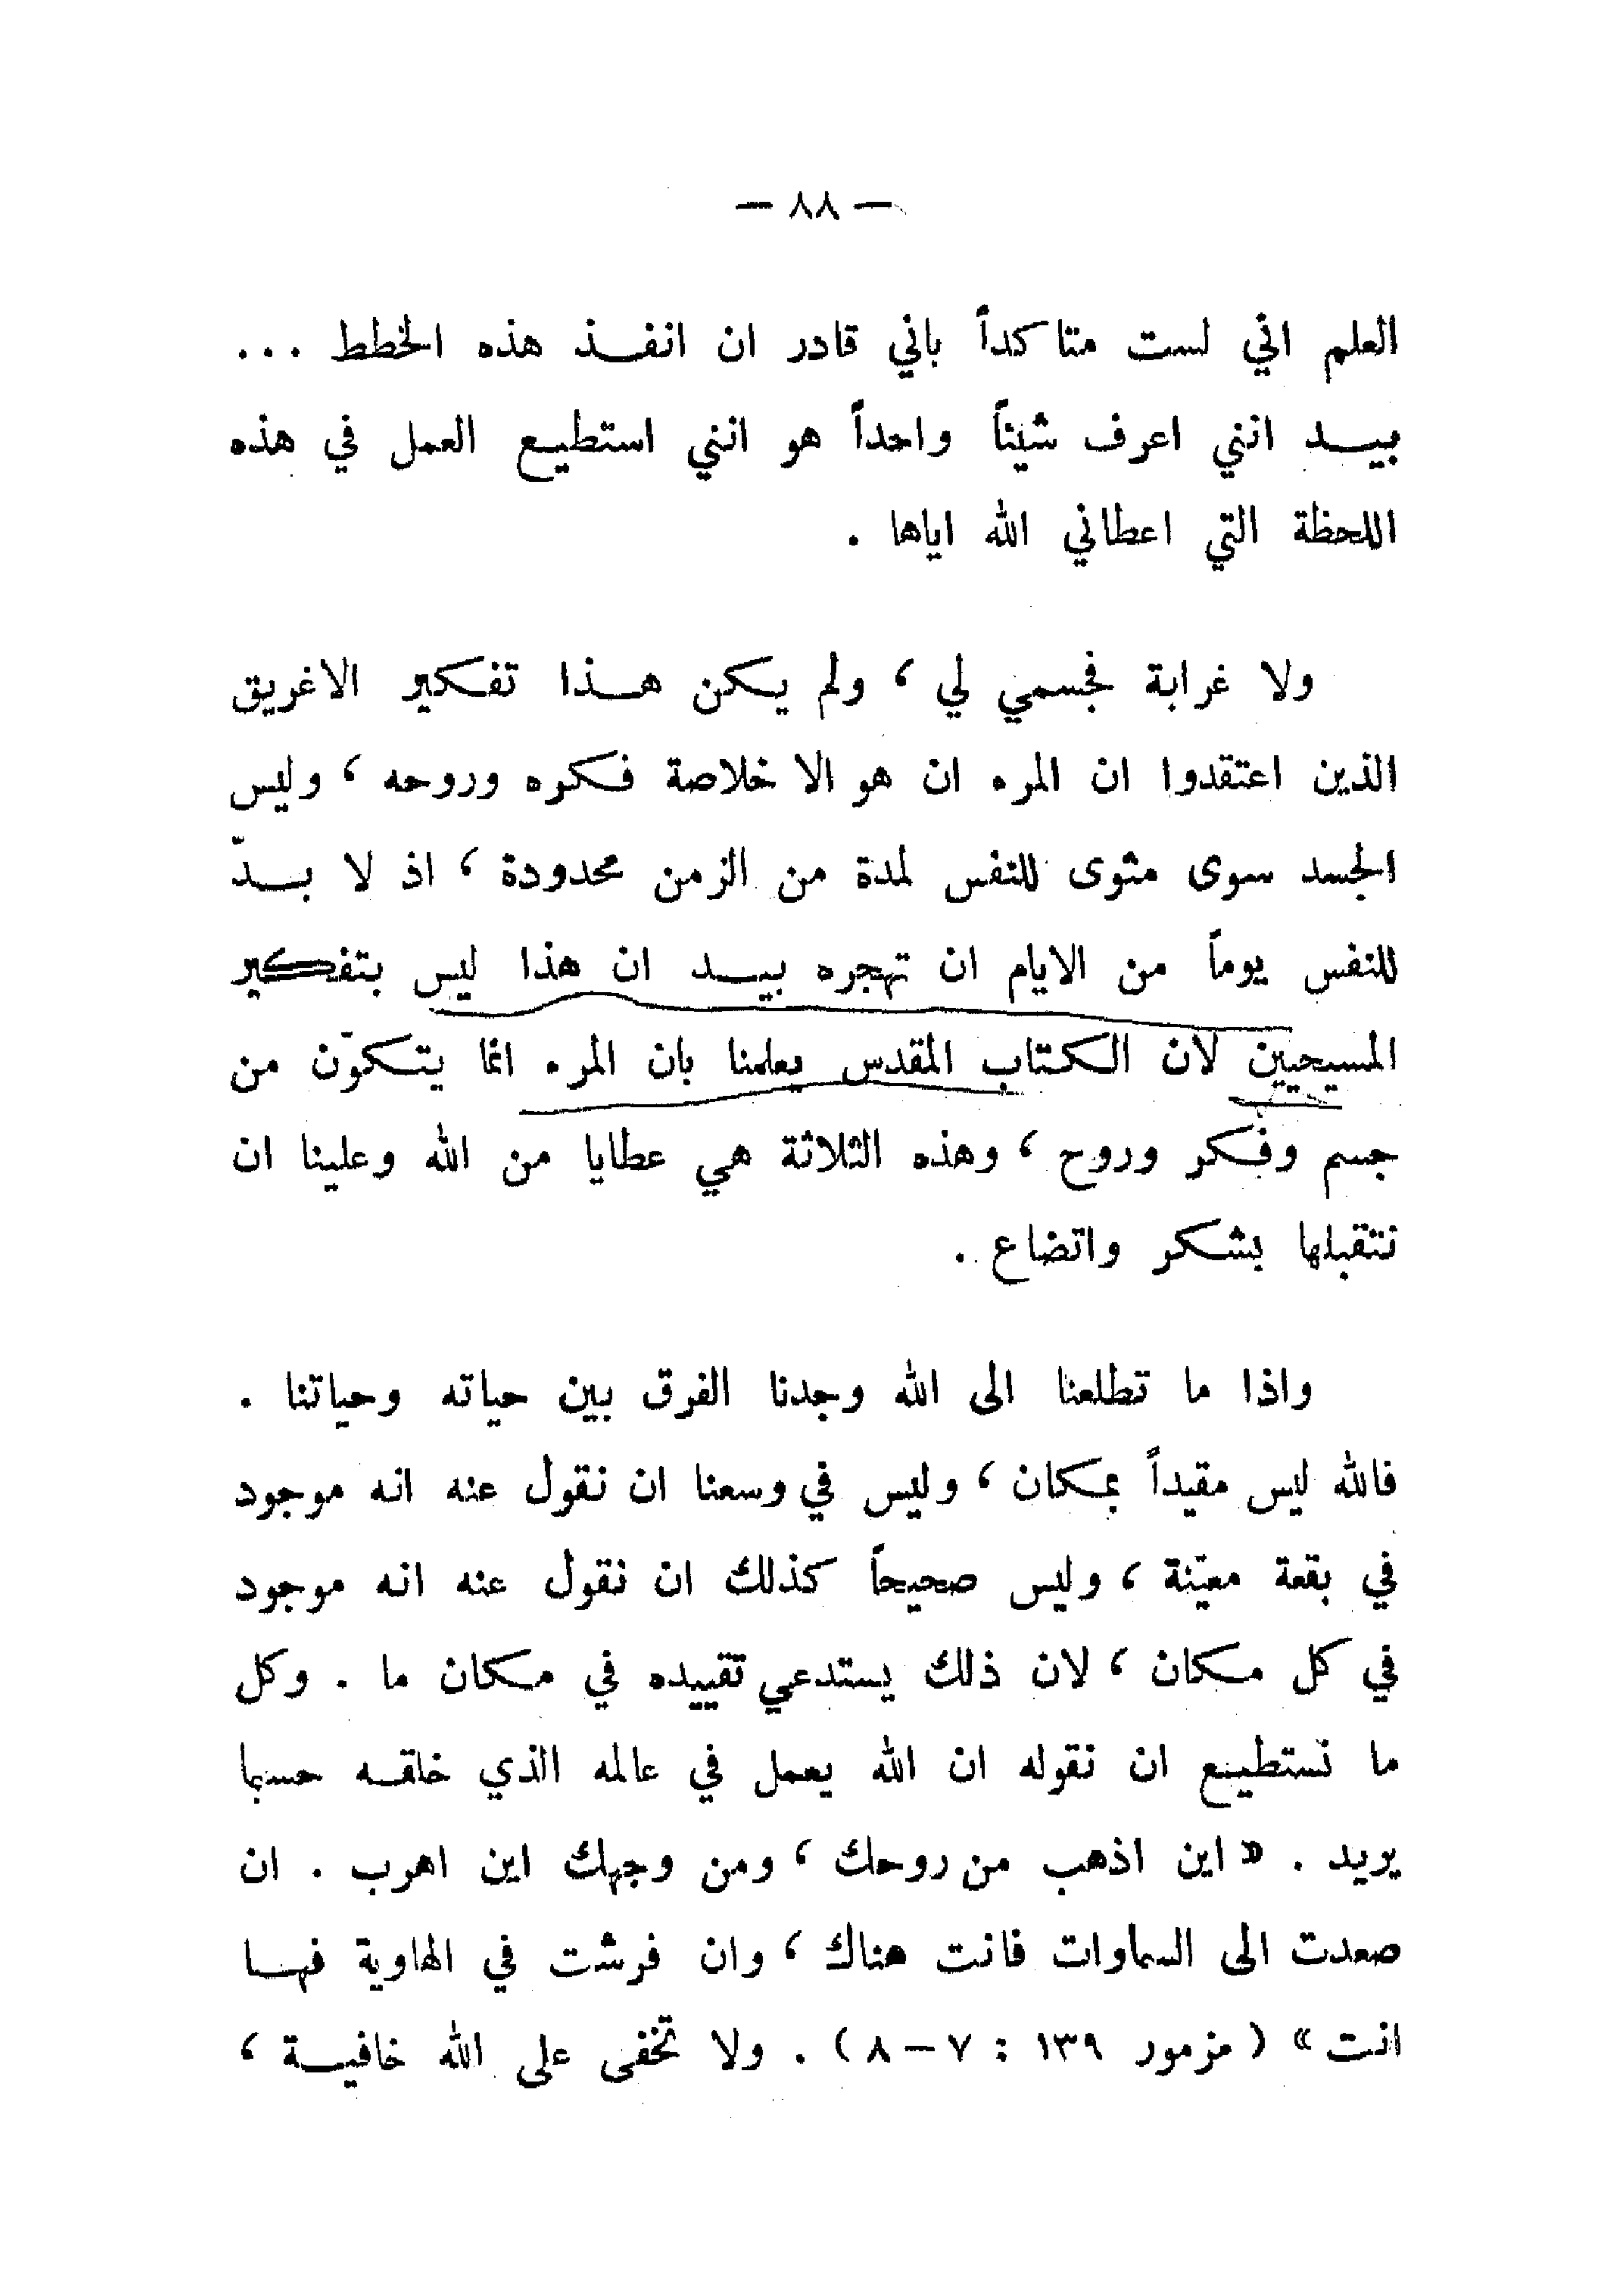 — ٨٨ —
العلم اني لست متاكداً باني قادر ان انفـذ هذه الخطط ...
بيـد انني اعرف شيئاً واحداً هو انني استطيـع العمل في هذه
اللحظة التي اعطاني الله اياها .
ولا غرابة فجسمي لي ، ولم يكن هـذا تفكير الاغريق
الذين اعتقدوا ان المرء ان هو الا خلاصة فكره وروحه ، وليس
الجسد سوى مثوى للنفس لمدة من الزمن محدودة ، اذ لا بـدّ
للنفس يوماً من الايام ان تهجره بيـد ان هذا ليس بتفكير
المسيحيين لان الكتاب المقدس يعلمنا بان المرء انما يتكوّن من
جسم وفكر وروح ، وهذه الثلاثة هي عطايا من الله وعلينا ان
نتقبلها بشكر واتضاع .
واذا ما تطلعنا الى الله وجدنا الفرق بين حياته وحياتنا .
فالله ليس مقيداً بمكان ، وليس في وسعنا ان نقول عنه انه موجود
في بقعة معيّنة ، وليس صحيحاً كذلك ان نقول عنه انه موجود
في كل مكان ، لان ذلك يستدعي تقييده في مكان ما . وكل
ما نستطيـع ان نقوله ان الله يعمل في عالمه الذي خلقـه حسبما
يريد . « اين اذهب من روحك ، ومن وجهك اين اهرب . ان
صعدت الى السماوات فانت هناك ، وان فرشت في الهاوية فهـا
انت » ( مزمور ١٣٩ : ٧ – ٨ ) . ولا تخفى على الله خافيـة ،